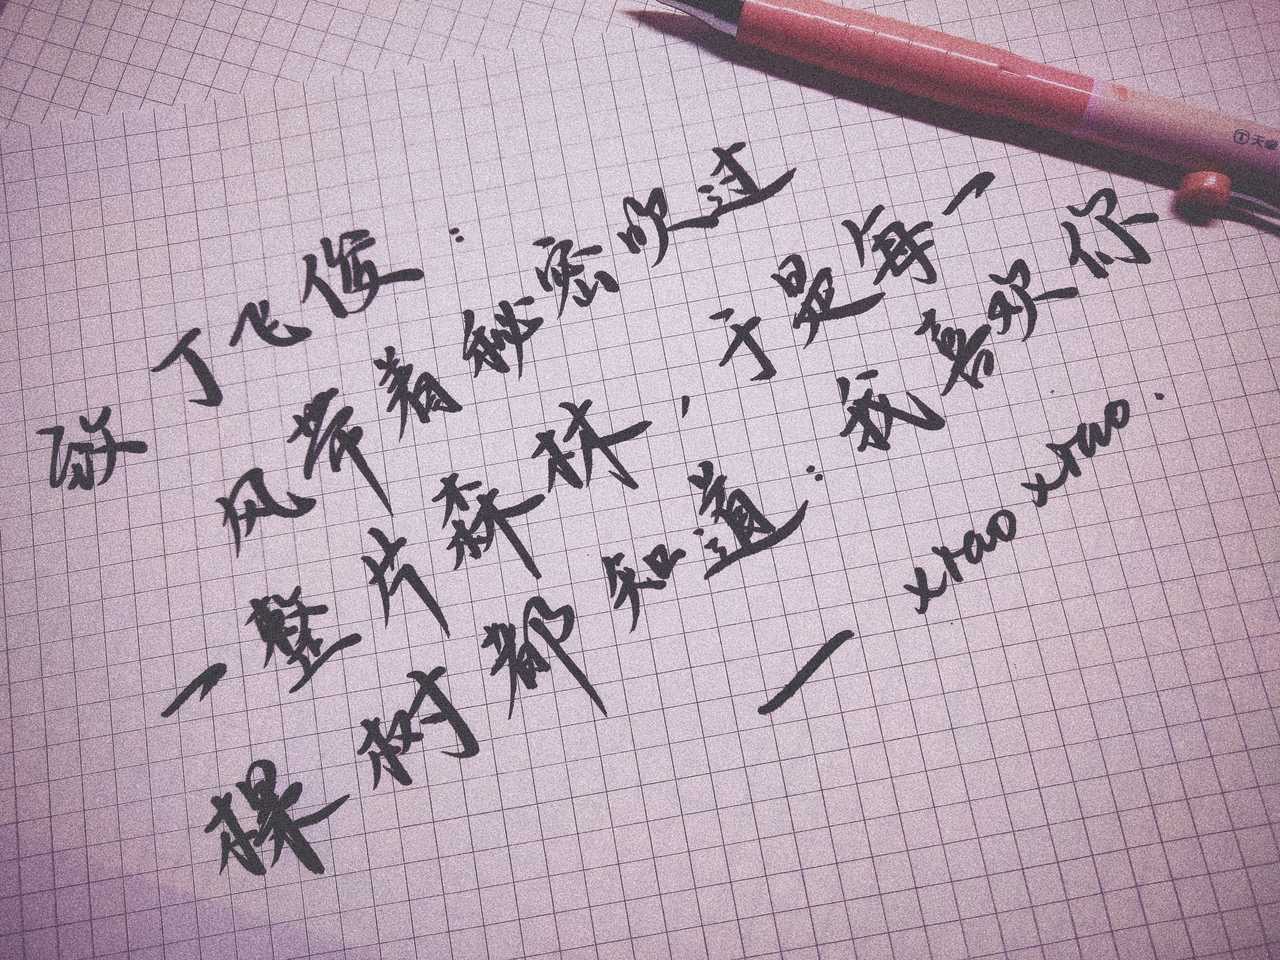 丁飞俊：
风带着秘密吹过
一整片森林，于是每一
棵树都知道：我喜欢你
— xiao xiao.